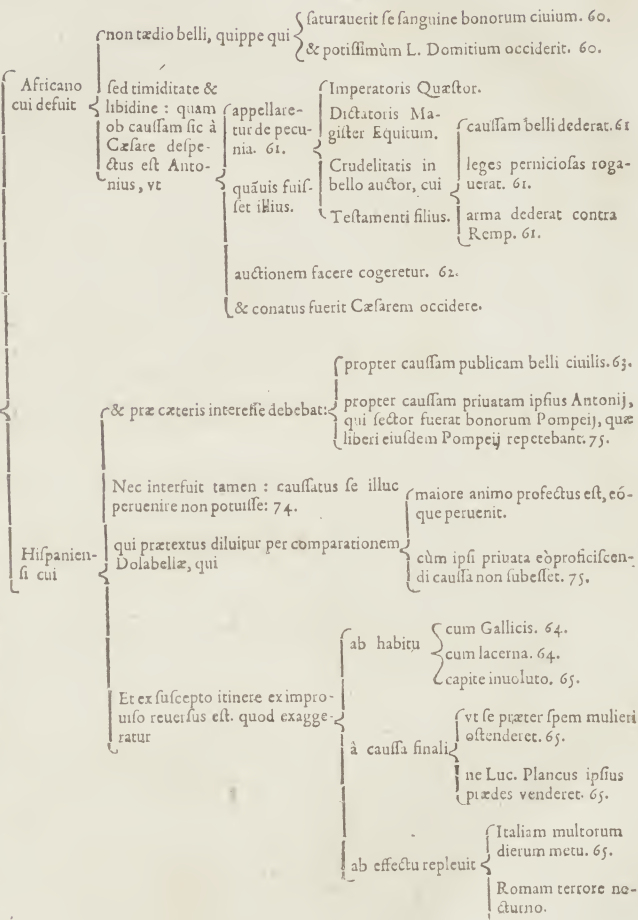 non tædio belli, quippe qui
ſaturauerit ſe ſanguine bonorum ciuium. 60.
& potiſſimùm L. Domitium occiderit. 60.
Africano
cui defuit
ſed timiditate &
libidine : quam
ob cauſſam ſic à
Cæſare deſpe-
ctus eſt Anto-
nius, vt
appellare-
tur de pecu-
nia. 61.
quãuis fuiſ-
ſet illius.
Imperatoris Quæſtor.
Dictatoris Ma-
giſter Equitum.
Crudelitatis in
bello auctor, cui
Teſtamenti filius.
cauſſam belli dederat. 61
leges pernicioſas roga-
uerat. 61.
arma dederat contra
Remp. 61.
auctionem facere cogeretur. 62.
& conatus fuerit Cæſarem occidere.
Hiſpanien-
ſi cui
& præ cæteris intereſſe debebat:
propter cauſſam publicam belli ciuilis. 63.
propter cauſſam priuatam ipſius Antonij,
qui ſector fuerat bonorum Pompeij, quæ
liberi eiuſdem Pompeij repetebant. 75.
Nec interfuit tamen : cauſſatus ſe illuc
peruenire non potuiſſe: 74.
qui prætextus diluitur per comparationem
Dolabellæ, qui
maiore animo profectus eſt, eó-
que peruenit.
cùm ipſi priuata eò proficiſcen-
di cauſſa non ſubeſſet. 75.
Et ex ſuſcepto itinere ex impro-
uiſo reuerſus eſt. quod exagge-
ratur
ab habitu
cum Gallicis. 64.
cum lacerna. 64.
capite inuoluto. 65.
à cauſſa finali
vt ſe præter ſpem mulieri
oſtenderet. 65.
ne Luc. Plancus ipſius
prædes venderet. 65.
ab effectu repleuit
Italiam multorum
dierum metu. 65.
Romam terrore no-
cturno.